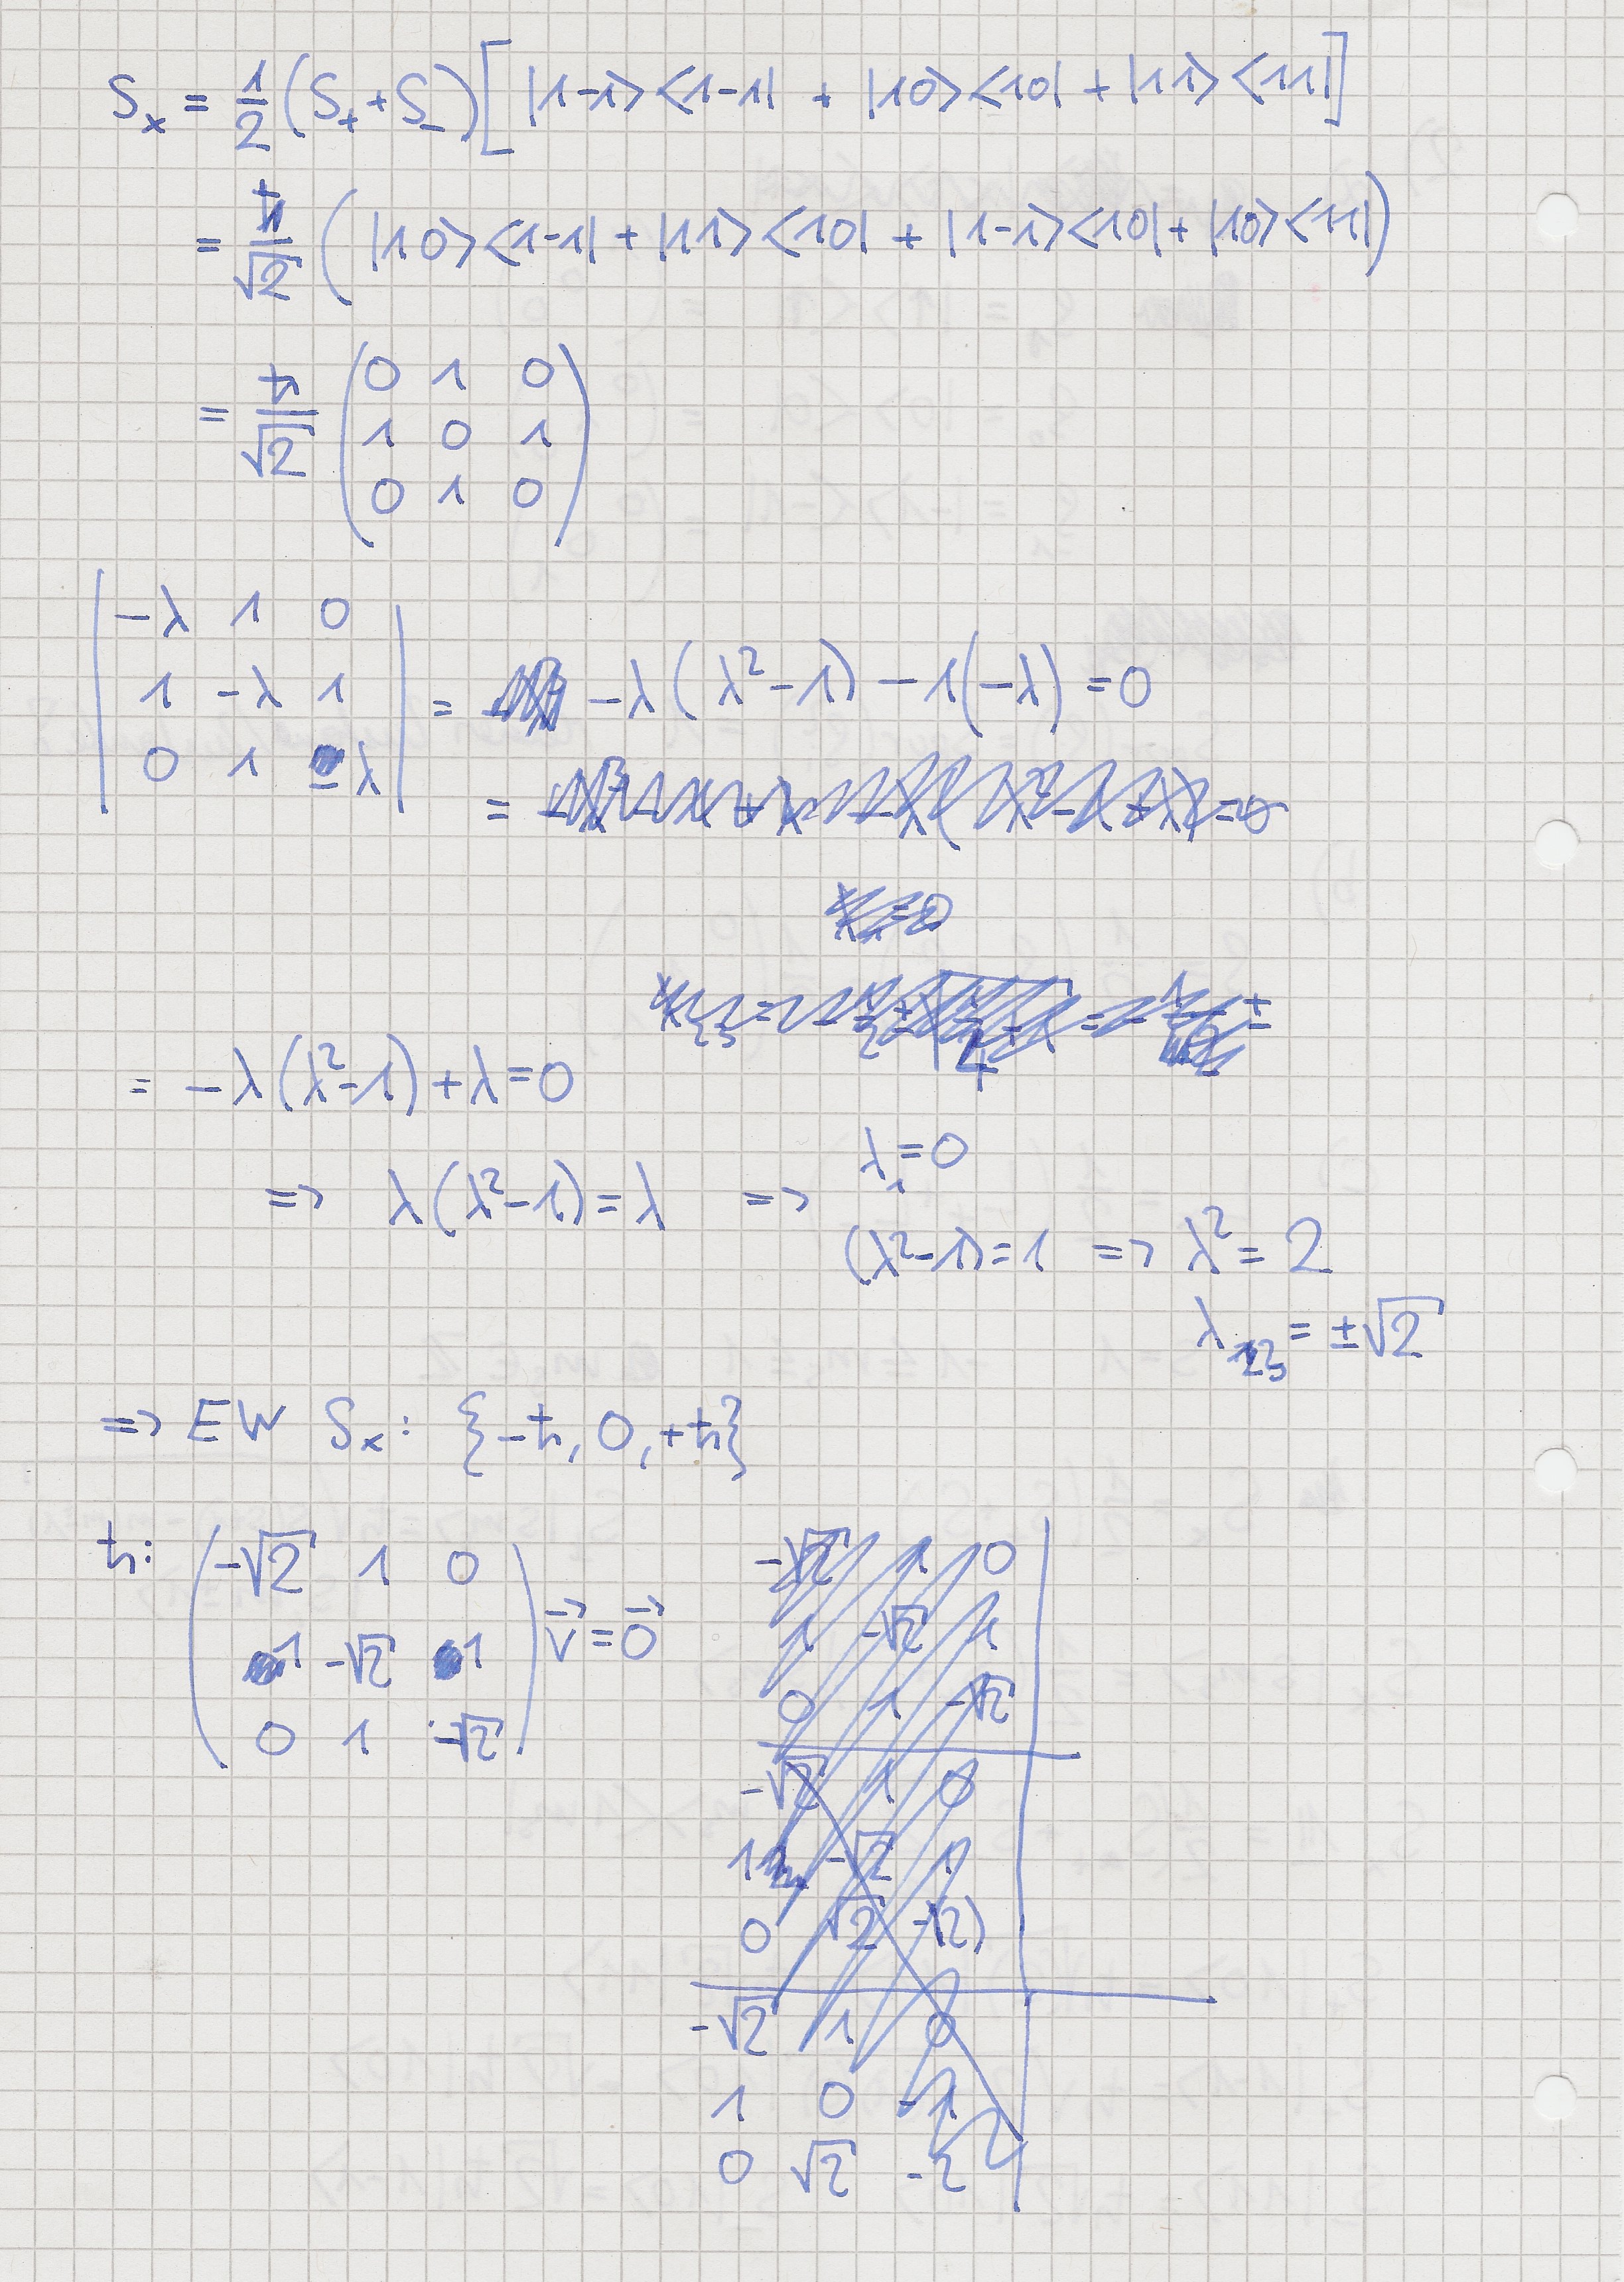 S_x = 1/2 (S_+ + S_-) [ |1-1><1-1| + |10><10| + |11><11| ]
= ħ/√2 ( |10><1-1| + |11><10| + |1-1><10| + |10><11| )
= ħ/√2 ( 0 1 0
1 0 1
0 1 0 )
| -λ 1 0 |
| 1 -λ 1 | = -λ(λ²-1) - 1(-λ) = 0
| 0 1 -λ |
=
= -λ(λ²-1) + λ = 0
λ_1 = 0
=> λ(λ²-1) = λ =>
(λ²-1) = 1 => λ² = 2
λ_23 = ±√2
=> EW S_x: {-ħ, 0, +ħ}
ħ: ( -√2 1 0
1 -√2 1
0 1 -√2 ) v⃗ = 0⃗
-√2 1 0
1 -√2 1
0 1 -√2
-√2 1 0
1 -√2 1
0 √2 -2
-√2 1 0
1 0 -1
0 √2 -2